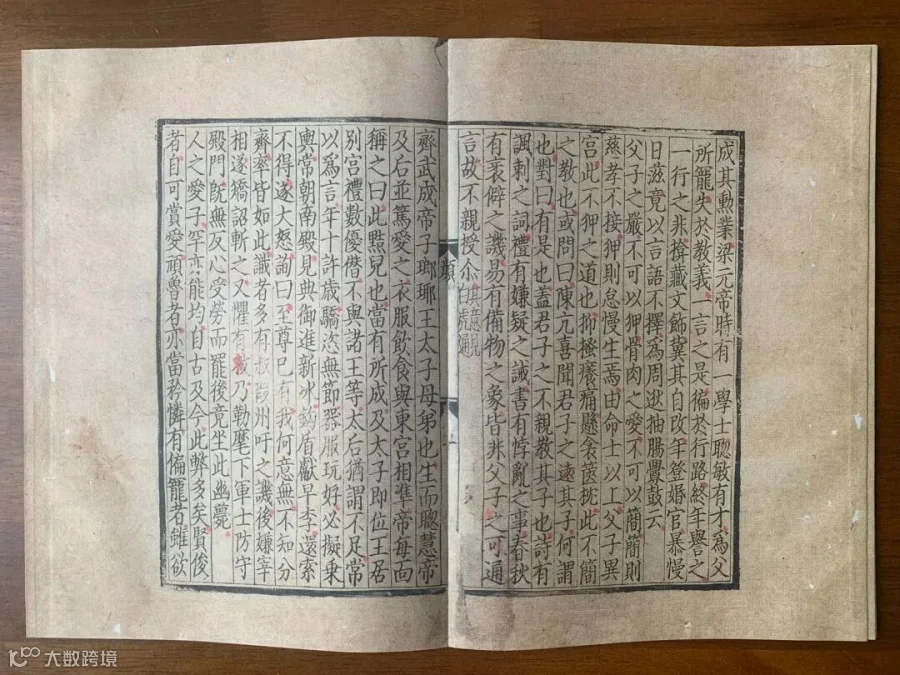 成其勳業梁元帝時有一學士聰敏有才為父
所寵失於教義一言之是徧於行路終年譽之
一行之非揜藏文飾冀其自改年登婚宦暴慢
日滋竟以言語不擇為周逖抽腸釁鼓云
父子之嚴不可以狎骨肉之愛不可以簡簡則
慈孝不接狎則怠慢生焉由命士以上父子異
宮此不狎之道也抑搔癢痛懸衾篋枕此不簡
之教也或問曰陳亢喜聞君子之遠其子何謂
也對曰有是也蓋君子之不親教其子也詩有
諷刺之詞禮有嫌疑之誡書有悖亂之事春秋
有衺僻之譏易有備物之象皆非父子之可通
言故不親授尒其意見白虎通
顏
齊武成帝子瑯瑘王太子母弟也生而聰慧帝
及后並篤愛之衣服飲食與東宮相準帝每面
稱之曰此黠兒也當有所成及太子即位王居
別宮禮數優僭不與諸王等太后猶謂不足常
以為言年十許歲驕恣無節器服玩好必擬乘
輿常朝南殿見典御進新冰鉤盾獻早李還索
不得遂大怒訽曰至尊已有我何意無不知分
齊率皆如此識者多有叔段州吁之譏後嫌宰
相遂矯詔斬之又懼有救乃勒麾下軍士防守
殿門既無反心受勞而罷後竟坐此幽薨
人之愛子罕亦能均自古及今此弊多矣賢俊
者自可賞愛頑魯者亦當矜憐有偏寵者雖欲
大数跨境